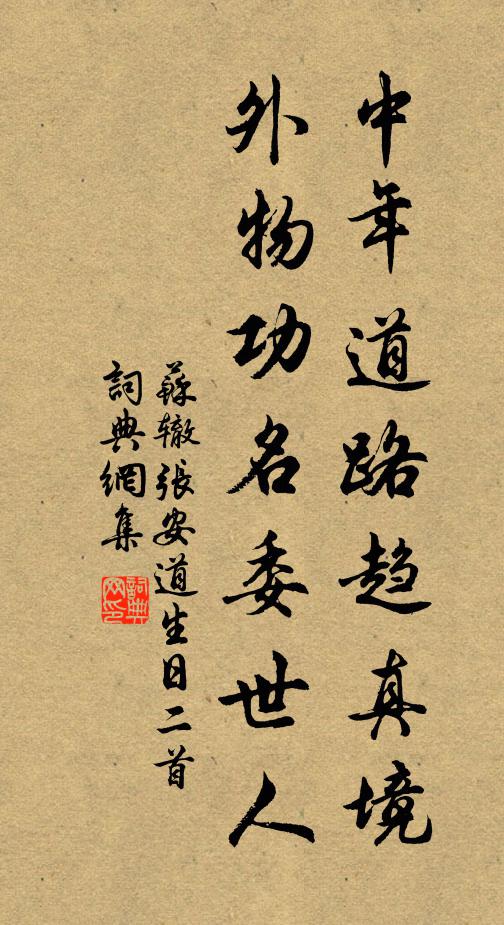 中年道路趋真境
外物功名委世人
蘇辙張安道生日二首
詞典網集
詞典网印